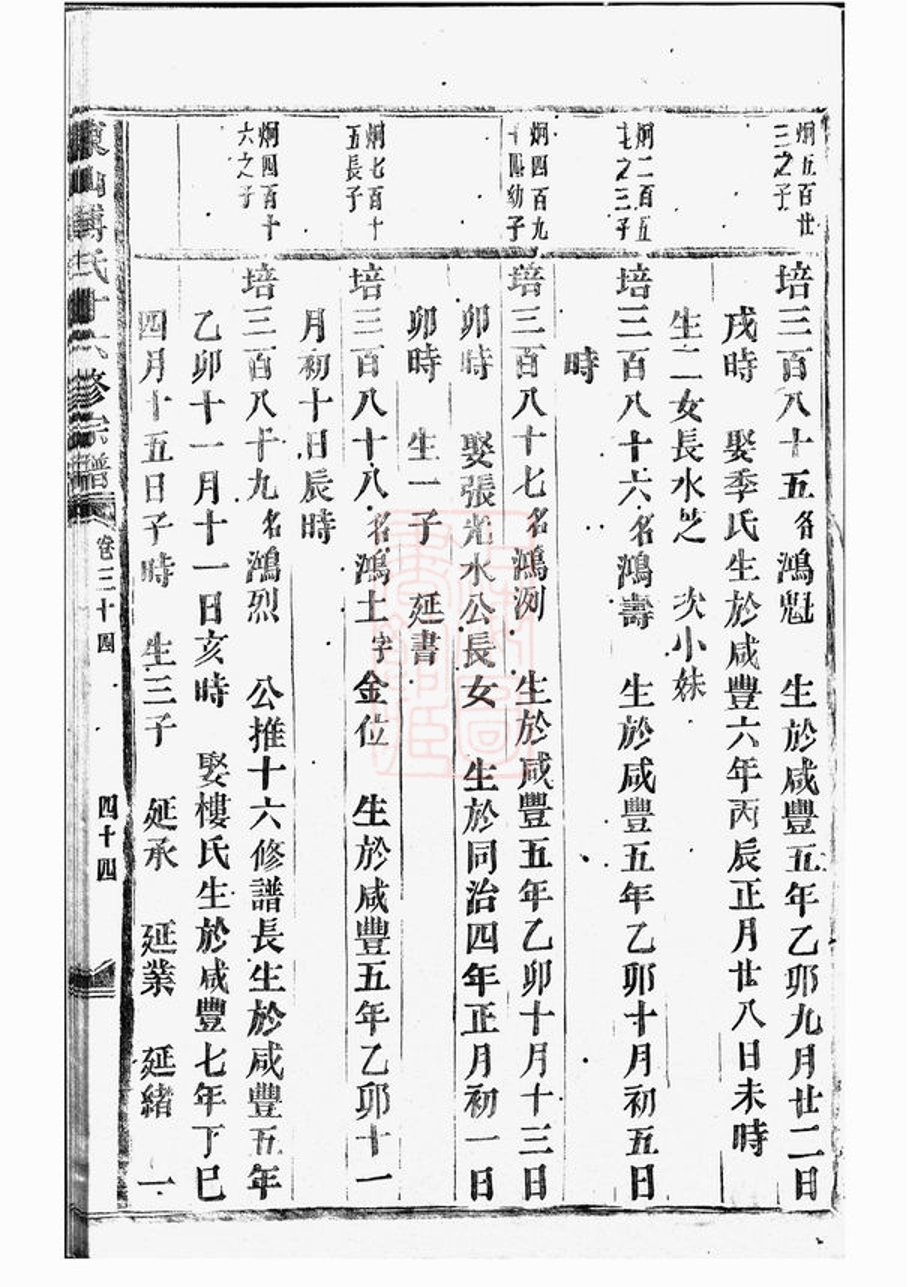 炯五百廿
三之子
培三百八十五名鴻魁　生於咸豐五年乙卯九月廿二日
戌時　娶季氏生於咸豐六年丙辰正月廿八日未時
生二女長水芝　次小妹
炯二百五
之三子
培三百八十六名鴻壽　生於咸豐五年乙卯十月初五日
時
炯四百九
十四幼子
培三百八十七名鴻洌　生於咸豐五年乙卯十月十三日
卯時　娶張光水公長女　生於同治四年正月初一日
卯時　生一子　延書
炯七百十
五長子
培三百八十八名鴻土字金位　生於咸豐五年乙卯十一
月初十日辰時
炯四百十
六之子
培三百八十九名鴻烈　公推十六修譜長生於咸豐五年
乙卯十一月十一日亥時　娶樓氏生於咸豐七年丁巳
四月十五日子時　生三子　延承　延業　延緒　一
傅氏十六修宗譜
卷三十四
四十四